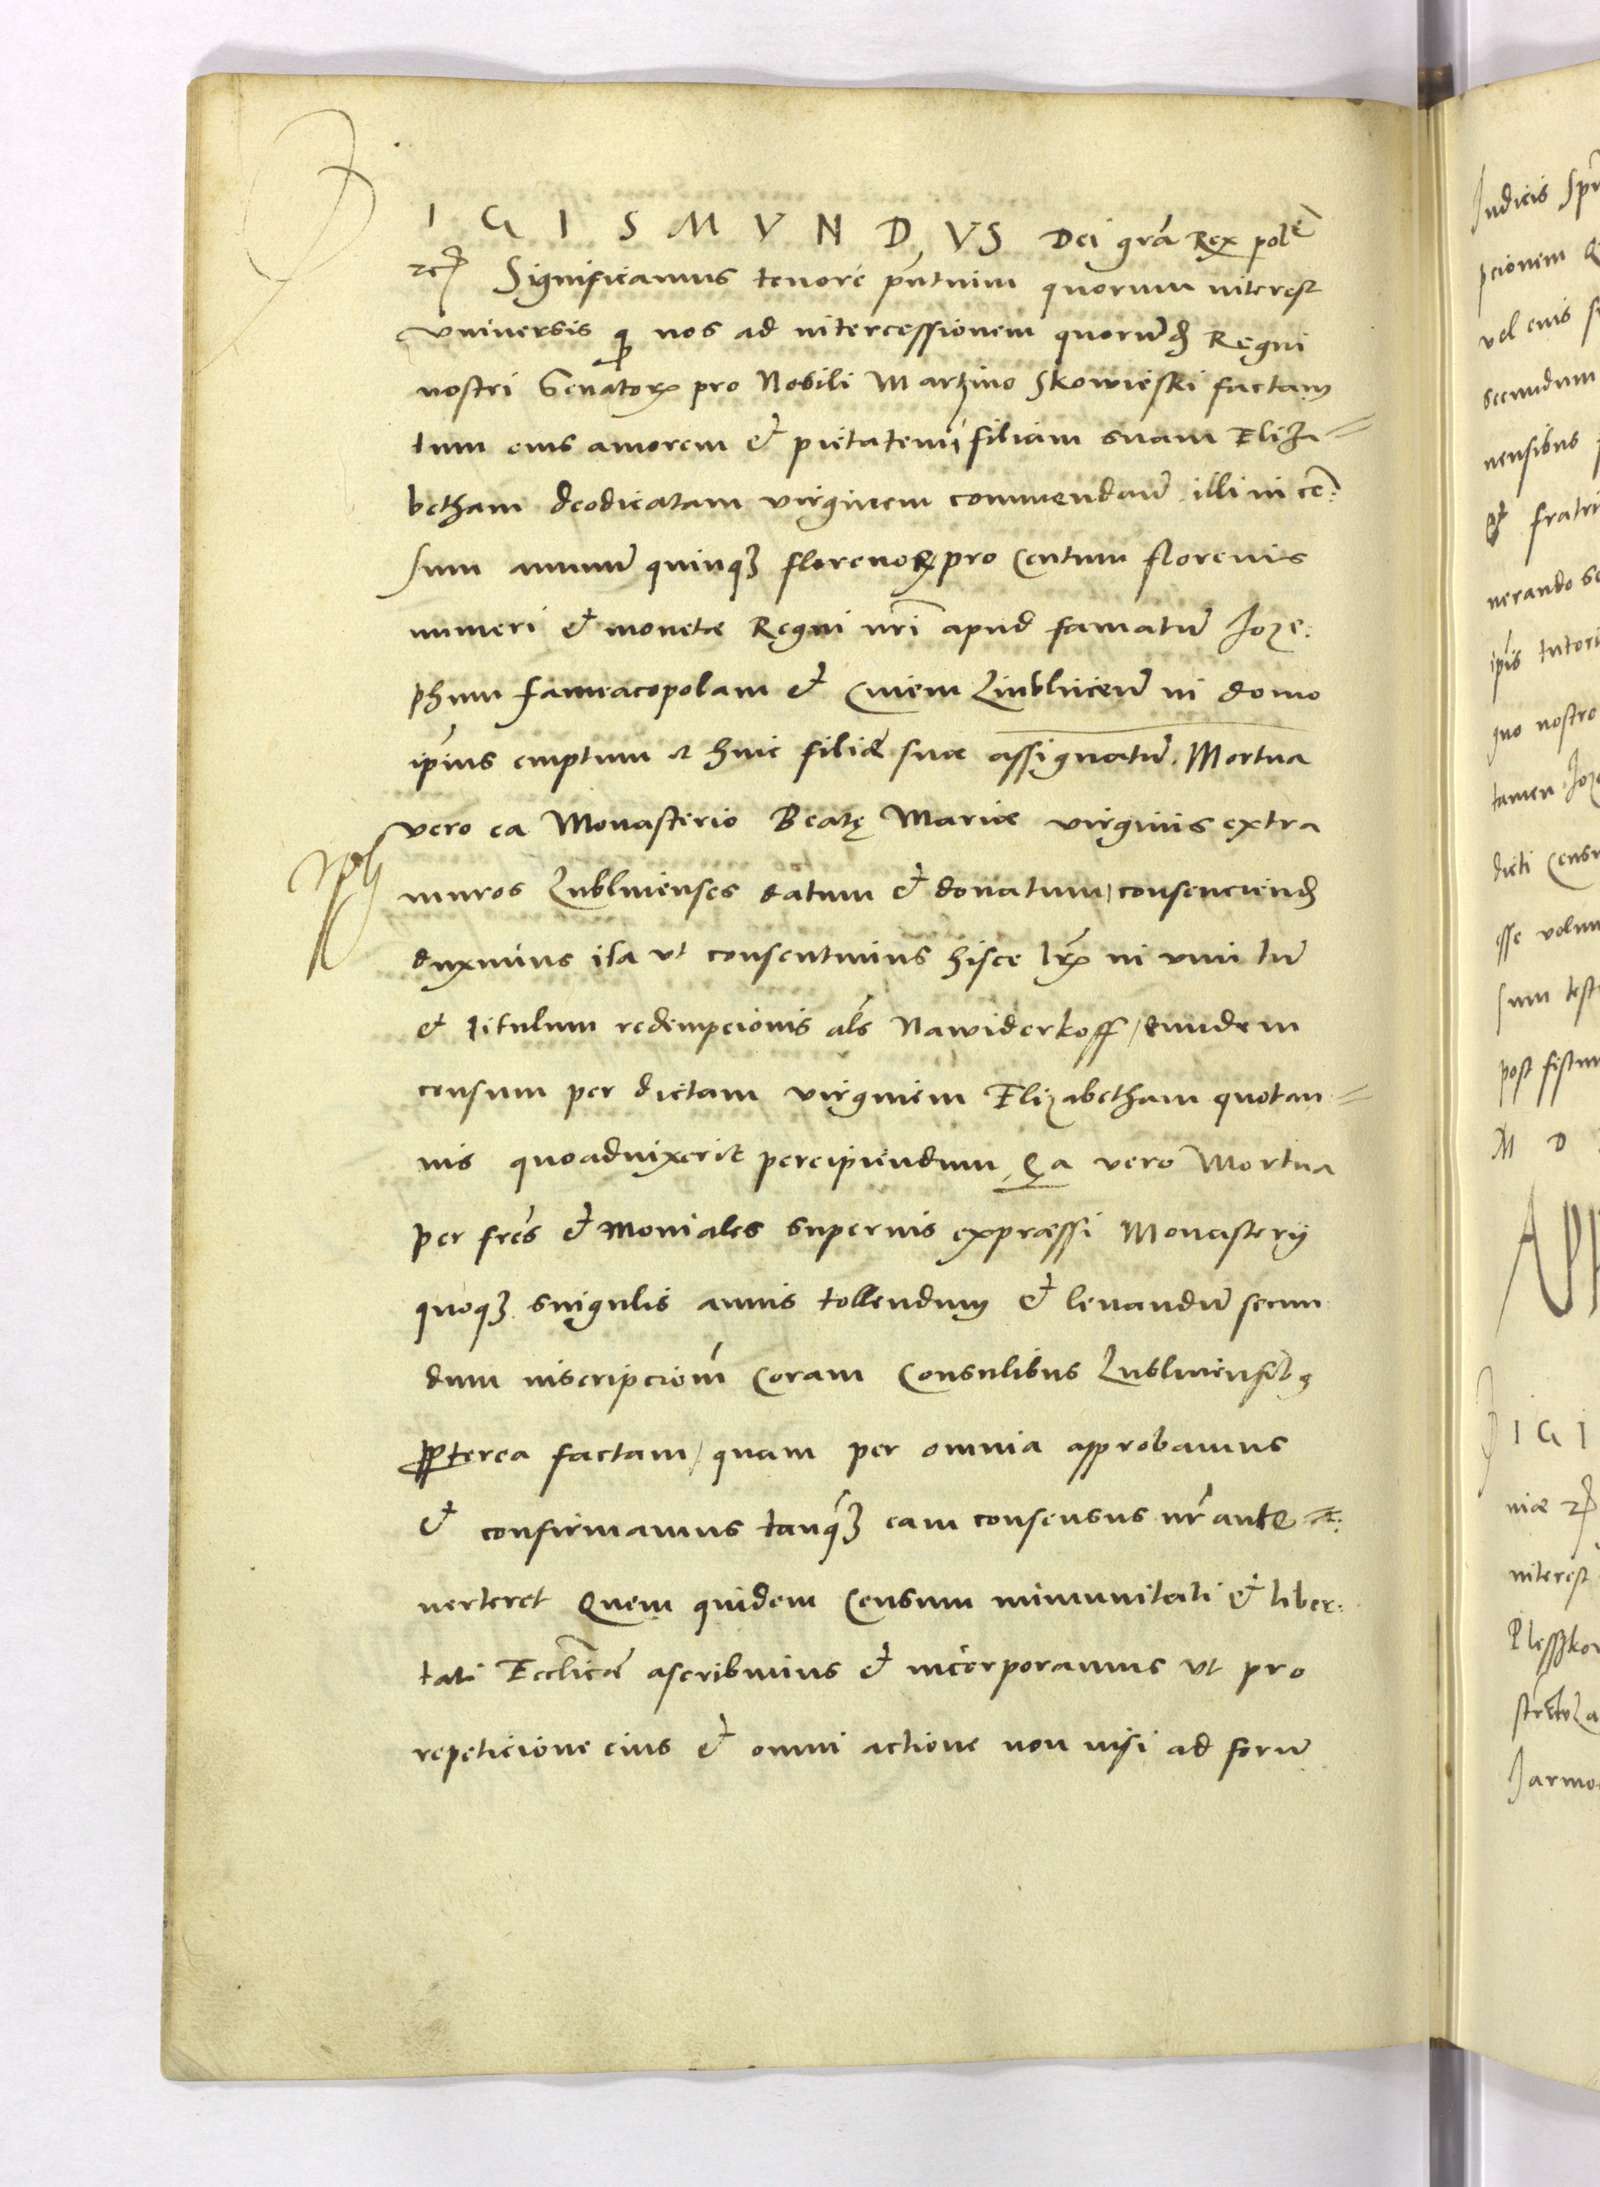 SIGISMVNDVS Dei grã Rex polẽ
Significamus tenore pñtnim quorum interest
vniversis q nos ad intercessionem quorũd Regni
nostri Senatorꝝ pro Nobili Martino Skowieski factam
tum eius amorem et pietatem in filiam suam Eliza=
betham deodicatam virginem commendaũ illi in cẽ:
sum annuũ quinqꝫ florenoꝝ pro Centum florenis
numeri et monetæ Regni nr̃i apud famatũ Joze:
phum farmacopolam et Ciuem Lublinceñ in domo
ip̃ius emptum et huic filiæ suæ assignatũ. Mortua
vero ea Monasterio Beatę Mariæ virginis extra
muros Lublinenses datum et donatum, consenciend
duximus ita vt consentimus hisce lr̃ꝝ in vim tũ
et titulum redempcionis als̃ Nawiderkoff, eundem
censum per dictam virginem Elizabetham quotan=
nis quoaduixerit percipiendum, Ea vero Mortua
per frẽs et Moniales superius expræssi Monasterij
quoqꝫ singulis annis tollendum et leuandũ secun
dum inscripcioñ Coram Consulibus Lublinensibꝰ
ꝓpterea factam, quam per omnia approbamus
et confirmamus tanqꝫ eam consensus nr̃ ante
uerteret Quem quidem Censum immunitati et liber:
tati Eccl̃icæ ascribimus et incorporamus vt pro
repeticione eius et omni actione non nisi ad forũ
Judicis
pcionem
vel eius
secundum
nensibus
et fratri
nerando
ip̃is tutori
gno nostro
tamen Joz
dicti Cens
esse volum
sum test
post fistu
M D
APP
IGI
niæ
interest
Plesszkow
Jarmo